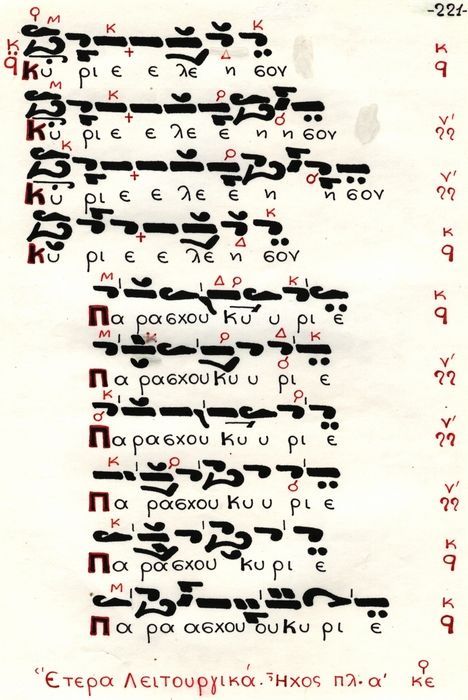 -221-
Κύ ρι ε ε λε η σον
Κύ ρι ε ε λε ε η η σον
Κύ ρι ε ε λε ε η η σον
Κύ ρι ε ε λε η σον
Πα ρασχου Κυ υ ρι ε
Πα ρασχου Κυ υ ρι ε
Πα ρασχου Κυ υ ρι ε
Πα ρασχου Κυ υ ρι ε
Πα ρασχου Κυ ρι ε
Πα ρα ασχου ου Κυ ρι ε
Ἕτερα Λειτουργικά. Ἦχος πλ. α' κε